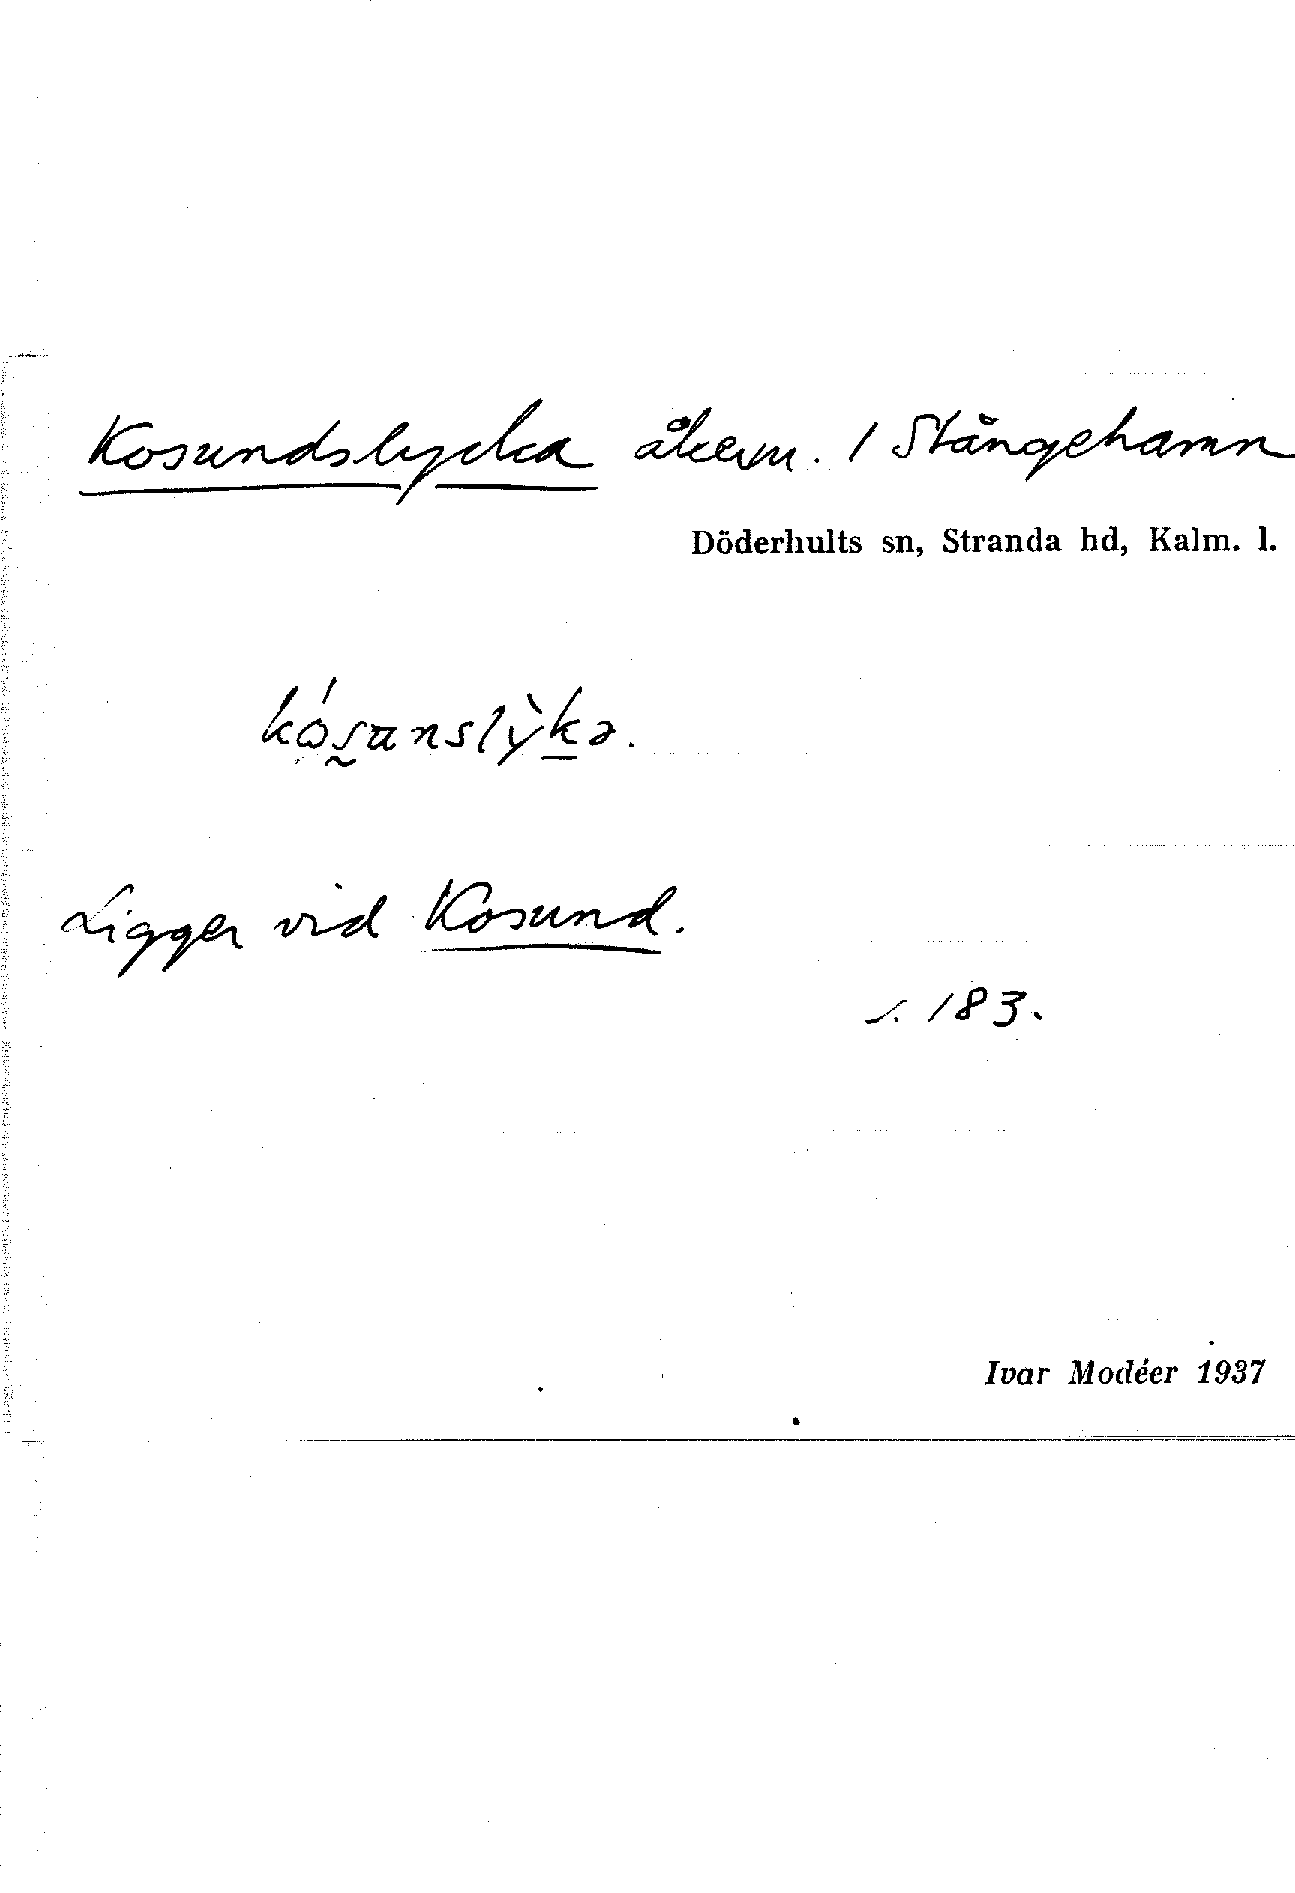 Kosundslycka åkerm. / Stångehamn
Döderhults sn, Stranda hd, Kalm. l.
kósanslỳkə.
Ligger vid Kosund.
s. 183.
Ivar Modéer 1937